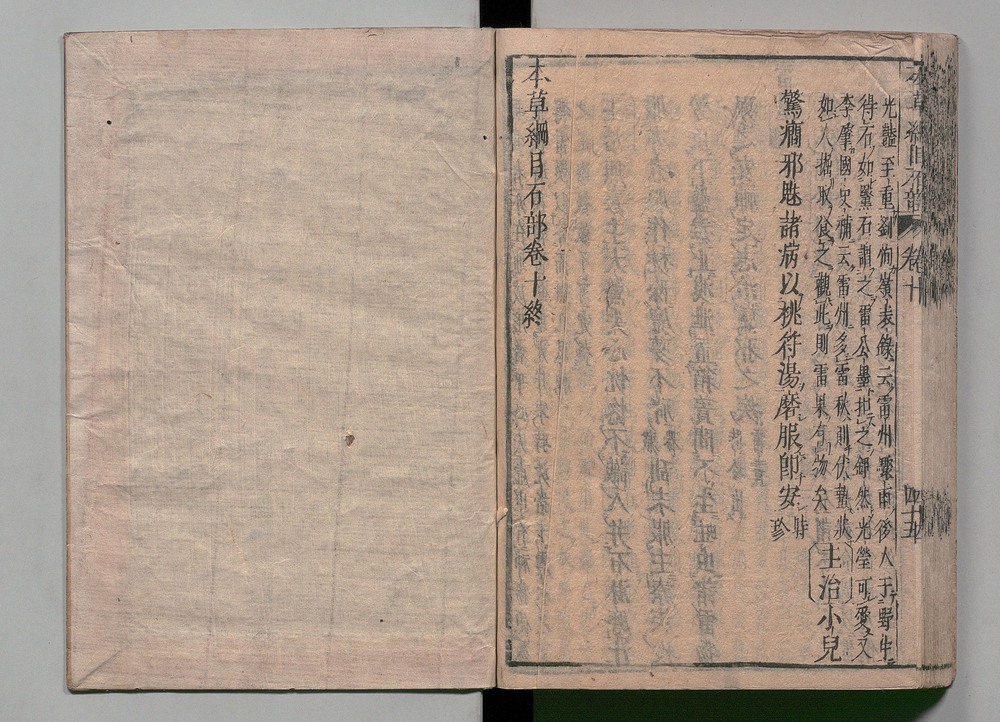 本草綱目石部 卷十 四十五
光豔至重劉恂嶺表錄云雷州驟雨後人于野中
得石如黳石謂之雷公墨扣之錚然光瑩可愛又
李肇國史補云雷州多雷秋則伏蟄狀
如人掘取食之觀此則雷果有物矣
主治小兒
驚癇邪魅諸病以桃符湯磨服卽安時珍
本草綱目石部卷十終